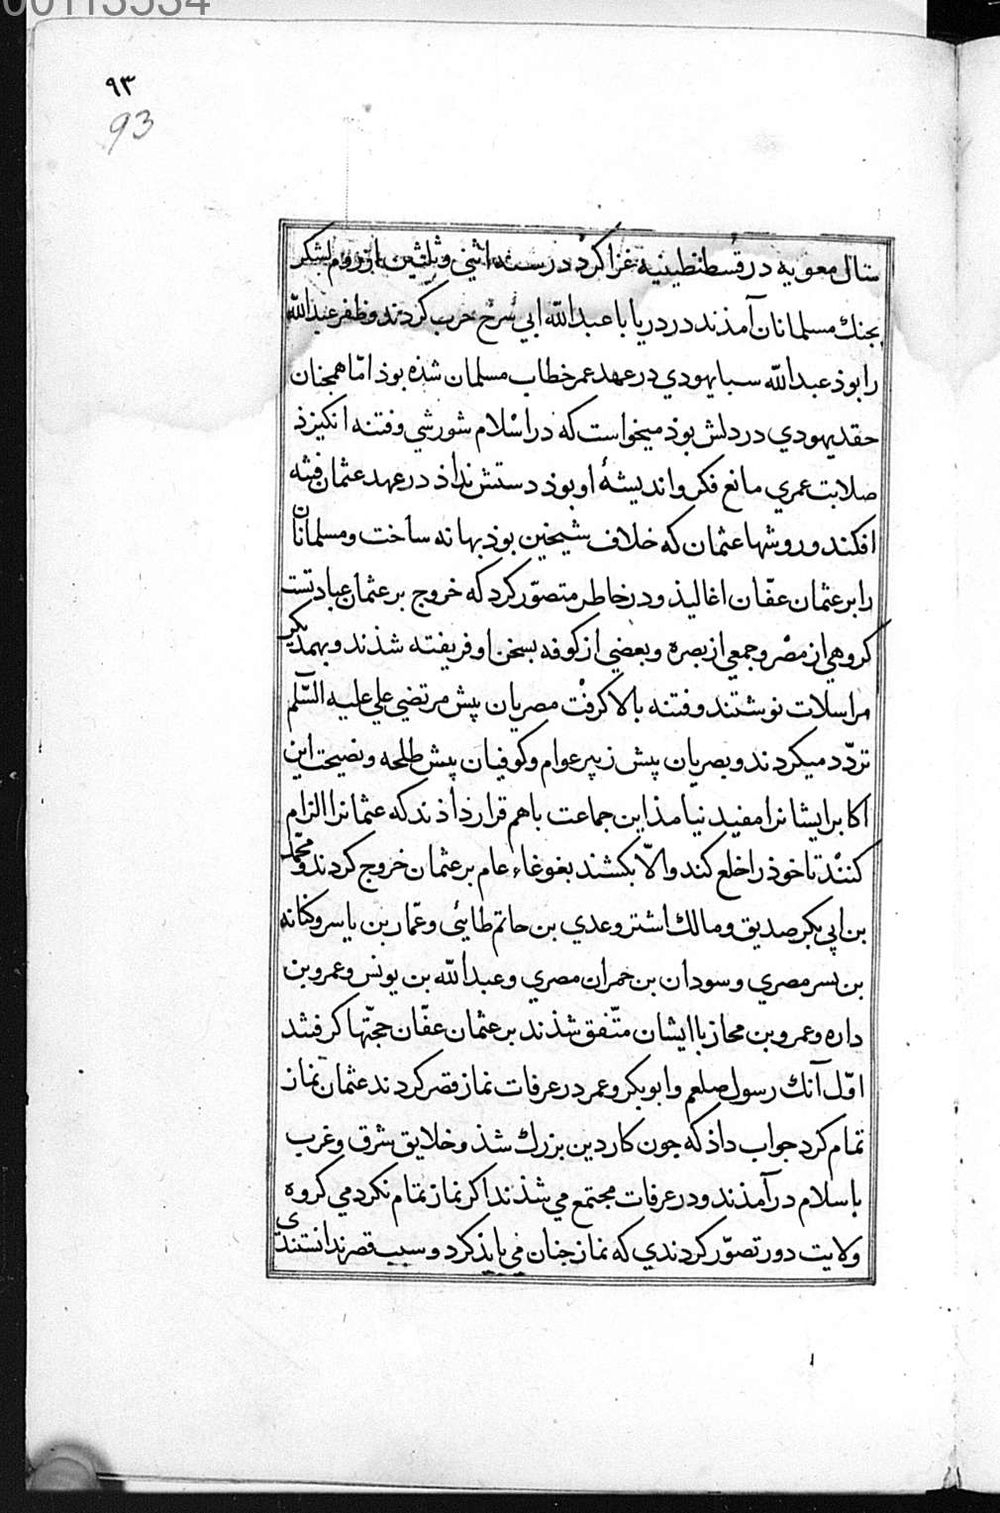 00113534
٩٣
93
سال معويه در قسطنطينيه غزا كرد در سنه اثنى وثلثين باز روم لشكر
بجنك مسلمانان آمذند در دريا با عبدالله ابي سرح حرب كردند وظفر عبدالله
را بوذ عبدالله سبا يهودي در عهد عمر خطاب مسلمان شذه بوذ امّا همجنان
حقد يهودي در دلش بوذ ميخواست كه در اسلام شورشي وفتنه انكيزذ
صلابت عمري مانع فكر وانديشهٔ او بوذ دستش نداذ در عهد عثمان فتنه
افكند وروشها عثمان كه خلاف شيخين بوذ بهانه ساخت ومسلمانان
را بر عثمان عفّان اغاليذ ودر خاطر متصوّر كرد كه خروج بر عثمان عبادتست
كروهي از مصر وجمعي از بصره وبعضي از كوفه بسخن او فريفته شذند وبهمديكر
مراسلات نوشتند وفتنه بالا كرفت مصريان پيش مرتضي علي عليه السّلم
تردّد ميكردند وبصريان پيش زبير عوام وكوفيان پيش طلحه ونصيحت اين
اكابر ايشانرا مفيد نيامذ اين جماعت باهم قرار داذند كه عثمانرا الزام
كنند تا خوذ را خلع كند والاّ بكشند بغوغاء عام بر عثمان خروج كردند ومحمّد
بن ابي بكر صديق ومالك اشتر وعدي بن حاتم طايئى وعمّار بن ياسر وكنانه
بن بسر مصري وسودان بن حمران مصري وعبدالله بن يونس وعمرو بن
داره وعمرو بن محاز با ايشان متّفق شذند بر عثمان عفّان حجّتها كرفتند
اوّل آنك رسول صلعم وابوبكر وعمر در عرفات نماز قصر كردند عثمان نماز
تمام كرد جواب داذ كه جون كار دين بزرك شذ وخلايق شرق وغرب
باسلام درآمذند ودر عرفات مجتمع مي شذند اكر نماز تمام نكردمي كروه
ولايت دور تصوّر كردندي كه نماز جنان مي بايذ كرد وسبب قصر ندانستندى